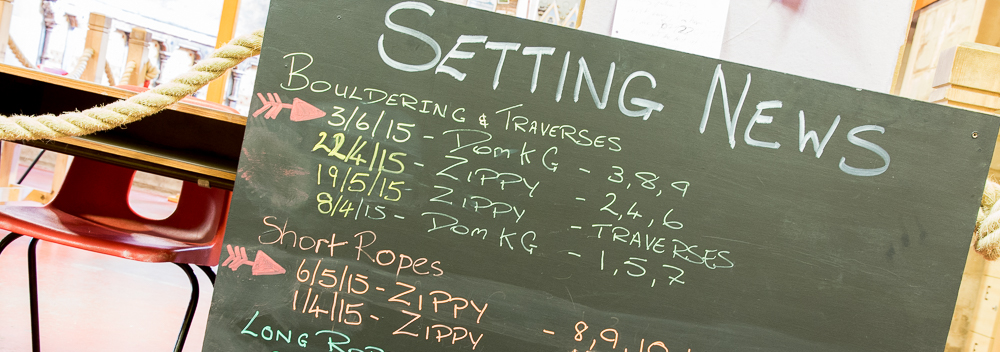 SETTING NEWS
BOULDERING & TRAVERSES
3/6/15 - Dom KG - 3,8,9
22/4/15 - ZIPPY - 2,4,6
19/5/15 - ZIPPY - TRAVERSES
8/4/15 - Dom KG - 1,5,7
Short Ropes
6/5/15 - ZIPPY - 8,9,10
1/4/15 - ZIPPY
LONG